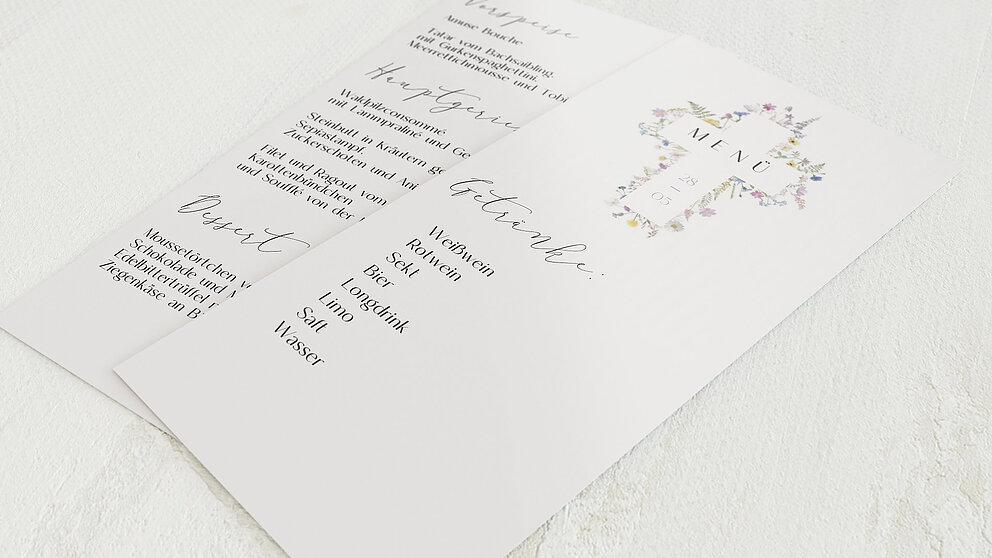 Vorspeise
Amuse Bouche
Tatar vom Bachsaibling,
mit Gurkenspaghettini,
Meerrettichmousse und Tobi
Hauptgeric
Waldpilzconsommé
mit Lammpraliné und Ge
Steinbutt in Kräutern ge
Sepiastampf,
Zuckerschoten und Ani
Filet und Ragout vom
Karottenbündchen
und Soufflé von der
Dessert
Moussetörtchen v
Schokolade und M
Edelbittertrüffel
Ziegenkäse an B
MENÜ
28
05
Getränke.
Weißwein
Rotwein
Sekt
Bier
Longdrink
Limo
Saft
Wasser